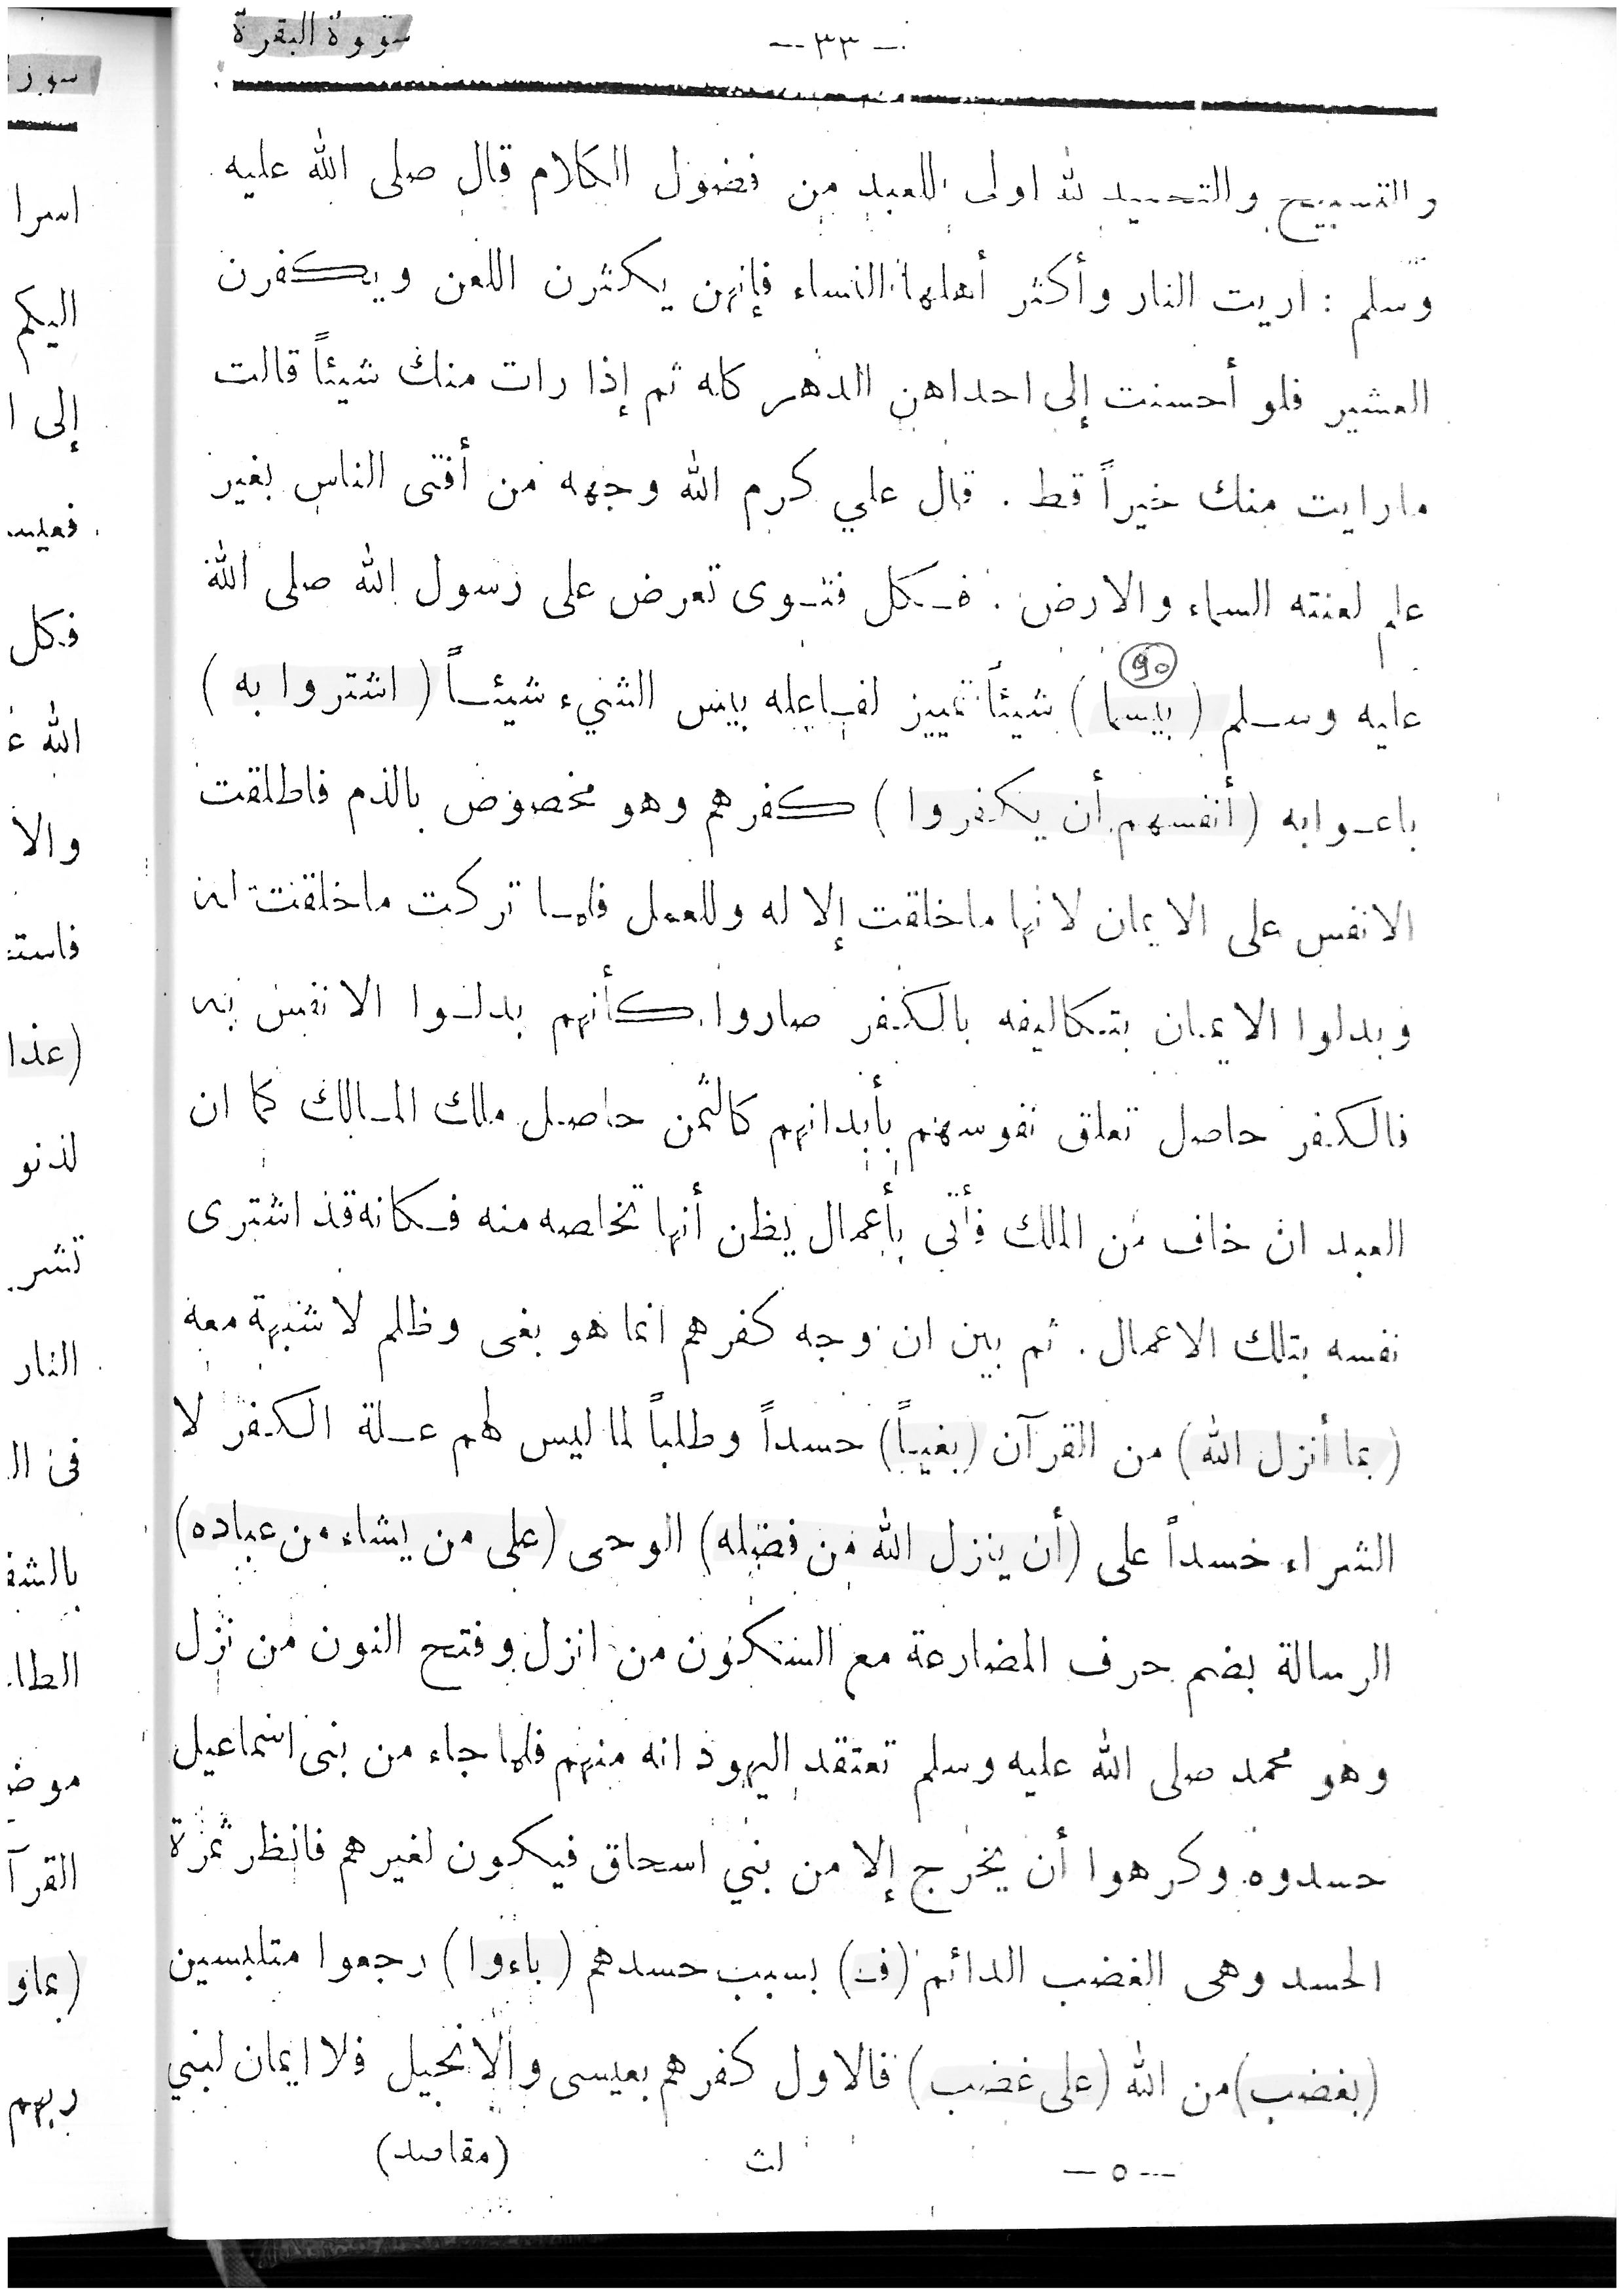 سورة البقرة
— ٣٣ —
والتسبيح والتحميد لله اولى للعبد من فضول الكلام قال صلى الله عليه
وسلم : اريت النار وأكثر أهلها النساء فإنهن يكثرن اللعن ويكفرن
العشير فلو أحسنت إلى احداهن الدهر كله ثم إذا رات منك شيئاً قالت
مارايت منك خيراً قط . قال علي كرم الله وجهه من أفتى الناس بغير
علم لعنته السماء والارض . فكل فتوى تعرض على رسول الله صلى الله
90
عليه وسلم (بيسما) شيئاً تمييز لفاعله بيس الشيء شيئاً (اشتروا به)
باعوا به (أنفسهم أن يكفروا) كفرهم وهو مخصوص بالذم فاطلقت
الانفس على الايمان لانها ماخلقت إلا له وللعمل فلما تركت ماخلقت له
وبدلوا الايمان بتكاليفه بالكفر صاروا كأنهم بدلوا الانفس به
فالكفر حاصل تعلق نفوسهم بأبدانهم كالثمن حاصل ملك المالك كما ان
العبد ان خاف من المالك فأتى بأعمال يظن أنها تخلصه منه فكانه قد اشترى
نفسه بتلك الاعمال . ثم بين ان وجه كفرهم انما هو بغى وظلم لا شبهة معه
(بما أنزل الله) من القرآن (بغياً) حسداً وطلباً لما ليس لهم علة الكفر لا
الشراء حسداً على (أن ينزل الله من فضله) الوحى (على من يشاء من عباده)
الرسالة بضم حرف المضارعة مع السكون من انزل وفتح النون من نزل
وهو محمد صلى الله عليه وسلم تعتقد اليهود انه منهم فلما جاء من بنى اسماعيل
حسدوه وكرهوا أن يخرج إلا من بني اسحاق فيكون لغيرهم فانظر ثمرة
الحسد وهى الغضب الدائم (ف) بسبب حسدهم (باءوا) رجعوا متلبسين
(بغضب) من الله (على غضب) فالاول كفرهم بعيسى والانجيل فلا ايمان لبني
— ٥ — لث (مقاصد)
اسرا
اليكم
إلى ا
فكل
والا
(عذا
لذنو
تشر
النار
القرآ
ربهم